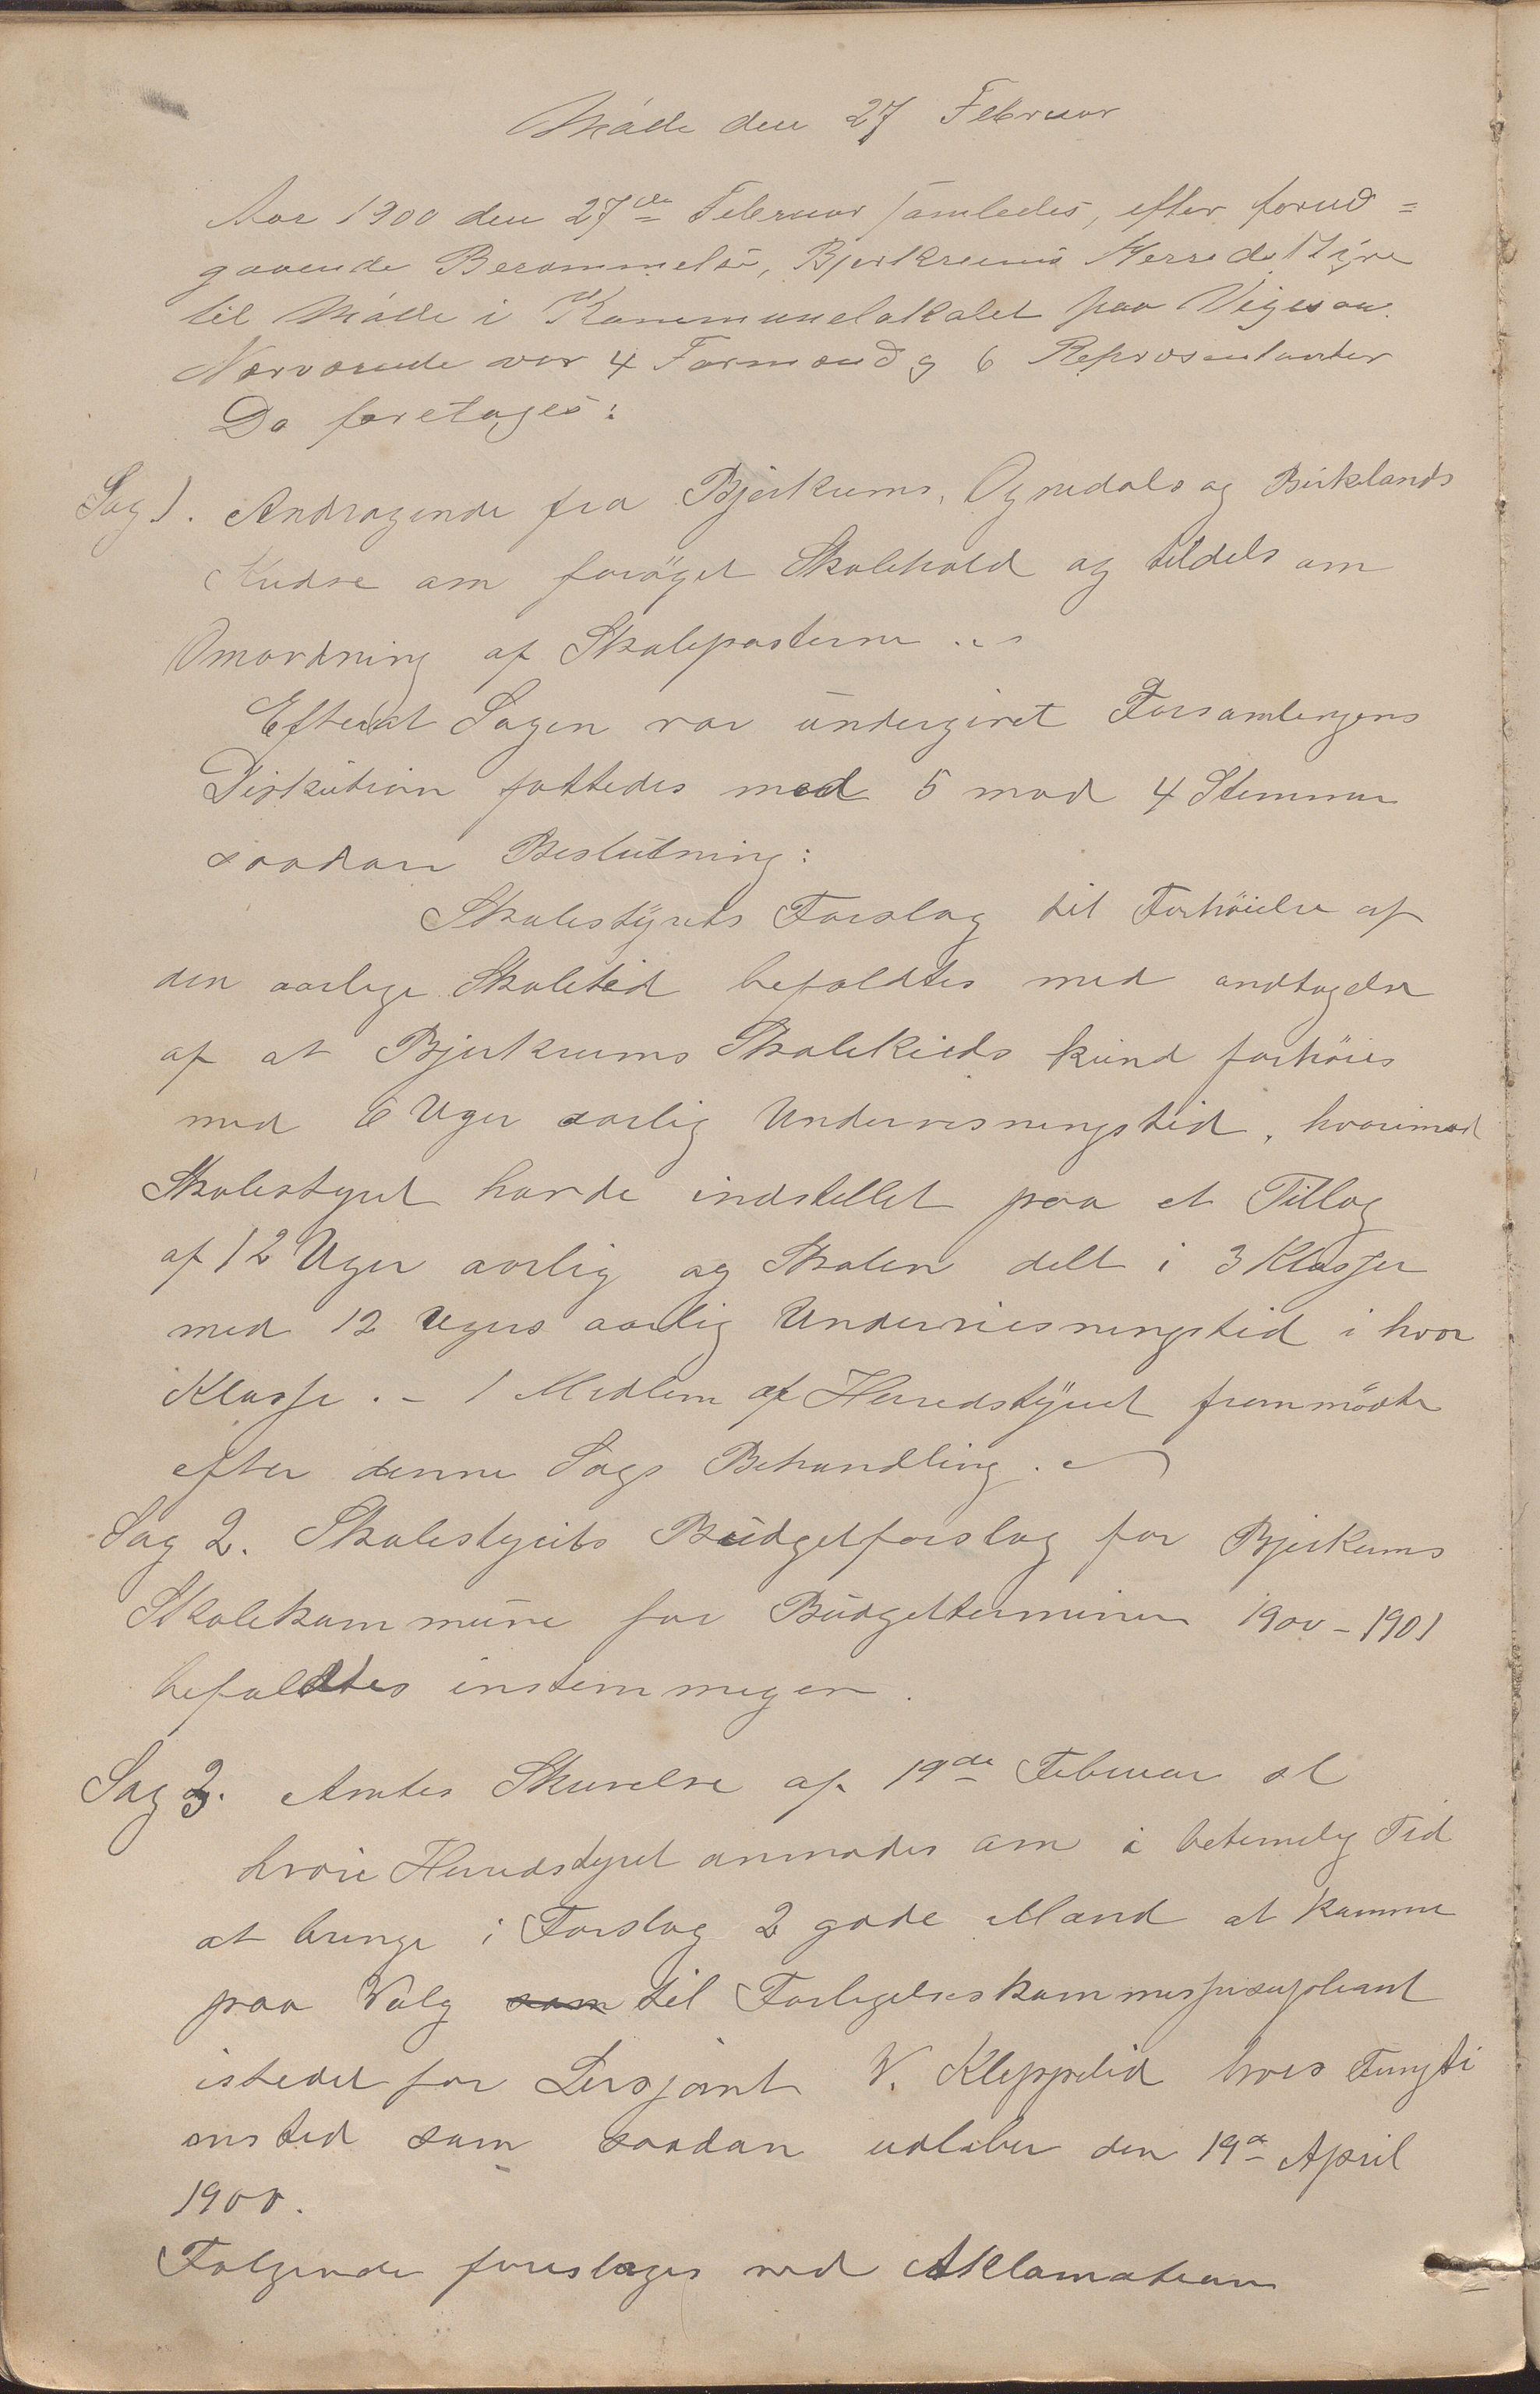 Møde den 27 Februar
Aar 1900 den 27de Februar samledes, efter forud=
gaaende Berammelse, Bjerkreims Herredsstyre
til Møde i Kommunelokalet paa Vigesaa.
Nærværende var 4 Formænd og 6 Repræsentanter
Da foretages:
Sag 1. Andragende fra Bjerkrems, Ognedals og Birklands
Kredse om forøget Skolehold og tildels om
Omordning af Skoleposterne
Efterat Sagen var undergivet Forsamlingens
Diskution fattedes med 5 mod 4 Stemmer
saadan Beslutning:
Skolestyrets Forslag til Forhøielse af
den aarlige Skoletid befaldtes med undtagelse
af at Bjerkrems Skolekreds kund forhøies
med 6 Uger aarlig Undervisningstid, hvorimod
Skolestyret havde indstillet paa et Tillæg
af 12 Uger aarlig og Skolen delt i 3 Klasser
med 12 Ugers aarlig Undervisningstid i hver
Klasse. – 1 Medlem af Herredstyret fremmødte
efter denne Sags Behandling.
Sag 2. Skolestyrets Budgetforslag for Bjerkrems
Skolekommune for Budgetterminen 1900–1901
befaldtes enstemmigen.
Sag 3. Amtes Skrivelse af 19de Februar sl
hvori Herredstyret anmodes om i betimelig Tid
at bringe i Forslag 2 gode Mænd at komme
paa Valg som til Forligelseskommissisupleant
istedet for Sersjant V. Kleppelid hvis Fungti
onstid som saadan udløber den 19de April
1900.
Følgende foreslages ved Aklamation